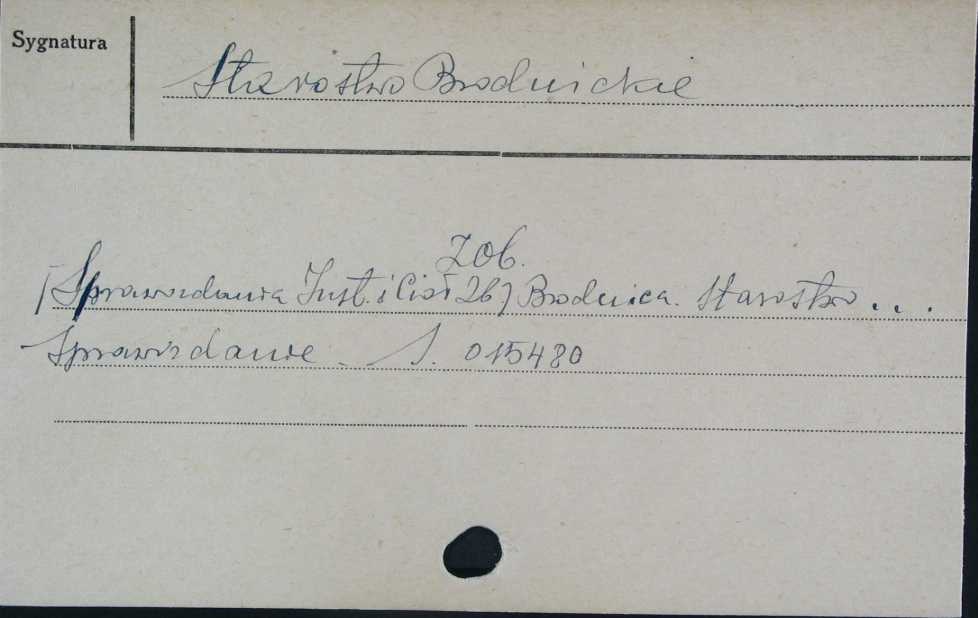 Sygnatura
Starostwo Brodnickie
Zob.
[Sprawozdania Inst. i Ciał 26] Brodnica. Starostwo ...
Sprawozdanie. S. 015480